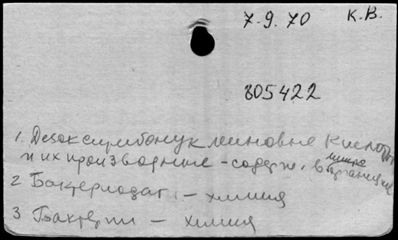 7.9.70 К.В.
805422
1 Дезоксирибонуклеиновые кислоты
и их производные – содерж. в организме
2 Бактериофаг – химия
3 Бактерии – химия